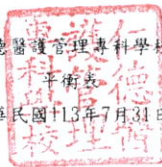 德醫護管理專科學校
平衡表
民國113年7月31日